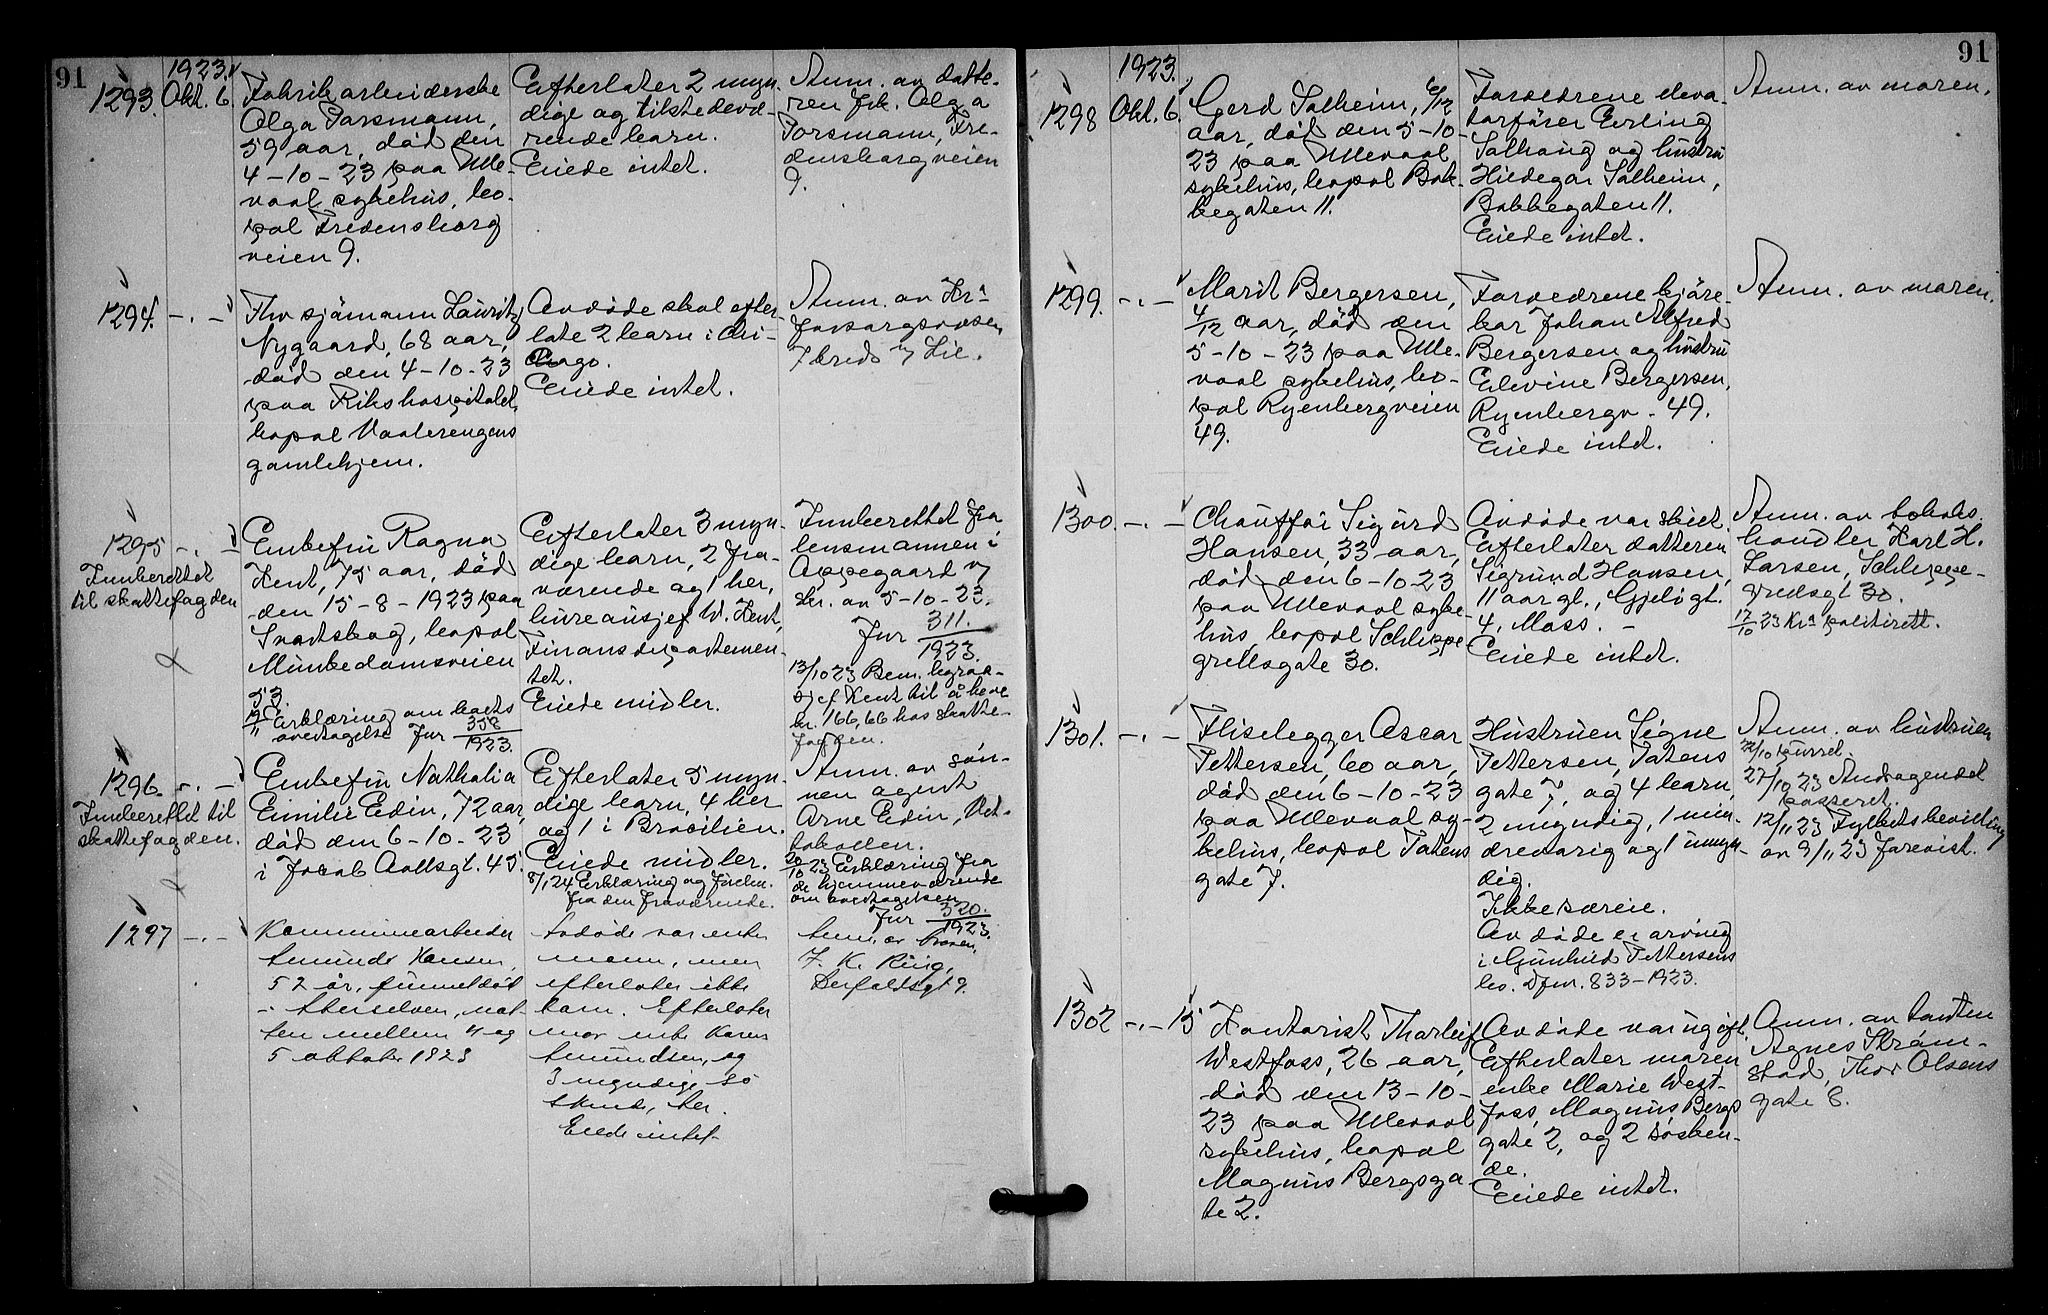 91
1923.
1293. Okt. 6.
Fabrikarbeiderske
Olga Torsmann,
59 aar, død den
4-10-23 paa Ulle-
vaal sykehus, bo-
pæl Fredensborg
veien 9.
Efterlater 2 myn-
dige og tilstedevæ-
rende barn.
Eiede intet.
Anm. av datte-
ren frk. Olga
Torsmann, Fre-
densborgveien
9.
1294. -.-
Fhv sjømann Lauritz
Nygaard, 68 aar,
død den 4-10-23
paa Rikshospitalet,
bopæl Vaalerengens
gamlehjem.
Avdøde skal efter-
late 2 barn i Chi-
cago.
Eiede intet.
Anm. av Kra
forsorgsvæsen
7 kreds v/ Lie.
1295 -.-
Innberettet
til skattefogden
Enkefru Ragna
Kent, 75 aar, død
den 15-8-1923 paa
Svartskog, bopæl
Munkedamsveien
53.
Erklæring om boets
overtagelse Jnr 358/1923.
Efterlater 3 myn-
dige barn, 2 fra-
værende og 1 her,
bureausjef W. Kent,
Finansdepartemen-
tet.
Eiede midler.
Innberettet fra
lensmannen i
Oppegaard v/
skr. av 5-10-23.
Jnr 311./1923.
13/10 23 Bem. byraa-
sjef Kent til å heve
kr. 166,66 hos skatte-
fogden.
1296. -.-
Innberettet til
skattefogden.
Enkefru Nathalia
Emilie Edin, 72 aar,
død den 6-10-23
i Jacob Aallsgt. 45.
Efterlater 5 myn-
dige barn, 4 her
og 1 i Brasilien.
Eiede midler.
8/1 24 Erklæring og
fra den fraværende.
Anm. av søn-
nen agent
Arne Edin, Net-
tokollen.
20/10 23 Erklæring fra
de hjemmeværende
om overtagelsen
Jnr 320./1923.
1297 -.-
Kommunearbeider
Amund Hansen,
52 år, funnet død
i Akerselven, nat-
ten mellem 4 og
5 oktober 1923
Avdøde var enke-
mann, men
efterlater ikke
barn. Efterlater
mor enke Karen
Amundsen, og
3 myndige sø
skende, her.
Eiede intet.
Anm. av
J. K. Ring,
Herfoldsgt 9.
91
1923.
1298 Okt. 6.
Gerd Solheim, 6/12
aar, død den 5-10-
23 paa Ullevaal
sykehus, bopæl Bak-
kegaten 11.
Forældrene eleva-
torfører Erling
Solhaug og hustru
Hildegar Solheim,
Bakkegaten 11.
Eiede intet.
Anm. av moren.
1299. -.-
Marit Bergersen,
4/12 aar, død den
5-10-23 paa Ulle-
vaal sykehus, bo-
pæl Ryenbergveien
49.
Forældrene kjøre-
kar Johan Alfred
Bergersen og hustru
Elevine Bergersen,
Ryenbergv. 49.
Eiede intet.
Anm. av moren.
1300. -.-
Chauffør Sigurd
Hansen, 33 aar,
død den 6-10-23
paa Ullevaal syke-
hus, bopæl Schleppe
grellsgate 30.
Avdøde var skilt.
Efterlater datteren
Sigrund Hansen,
11 aar gl., Gjeløgt.
4, Moss. -
Eiede intet.
Anm. av tobaks-
handler Karl H.
Larsen, Schleppe-
grellsgt 30.
17/10 23 Kra politirett.
1301. -.-
Fliselegger Oscar
Pettersen, 60 aar,
død den 6-10-23
paa Ullevaal sy-
kehus, bopæl Totens
gate 7.
Hustruen Signe
Pettersen, Totens
gate 7, og 4 barn,
2 myndig, 1 min-
dreaarig og 1 umyn-
dig.
Ikke særeie.
Avdøde er arving
i Gunhild Pettersens
bo. Dfnr. 833-1923.
Anm. av hustruen
27/10 23 Andragendet
passeret.
12/11 23 Fylkets bevilling
av 9/11 23 forevist.
1302 -.- 15
Kontorist Thorleif
Westfoss, 26 aar,
død den 13-10-
23 paa Ullevaal
sykehus, bopæl
Magnus Bergsga
te 2.
Avdøde var ugift.
Efterlater moren
enke Marie West-
foss, Magnus Bergs
gate 2, og 2 søsken-
de.
Eiede intet.
Anm. av tanten
Agnes Strøm-
stad, Thor Olsens
gate 8.